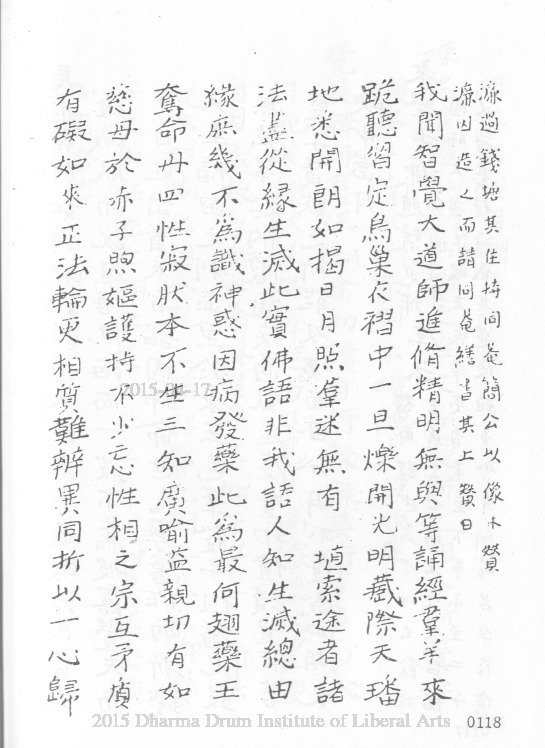 濂過錢塘其住持同菴簡公以像求贊
濂因造之而請同菴繕書其上贊曰
我聞智覺大道師進脩精明無與等誦經羣羊來
跪聽習定鳥巢衣褶中一旦爍開光明藏際天蟠
地悉開朗如揭日月照羣迷無有埴索途者諸
法盡從緣生滅此實佛語非我語人知生滅總由
緣庶幾不為識神惑因病發藥此為最何翅藥王
奪命丹四性寂狀本不生三知廣喻益親切有如
慈母於赤子煦嫗護持不少忘性相之宗互矛盾
有礙如來正法輪更相質難辨異同折以一心歸
2015-04-17
2015 Dharma Drum Institute of Liberal Arts
0118